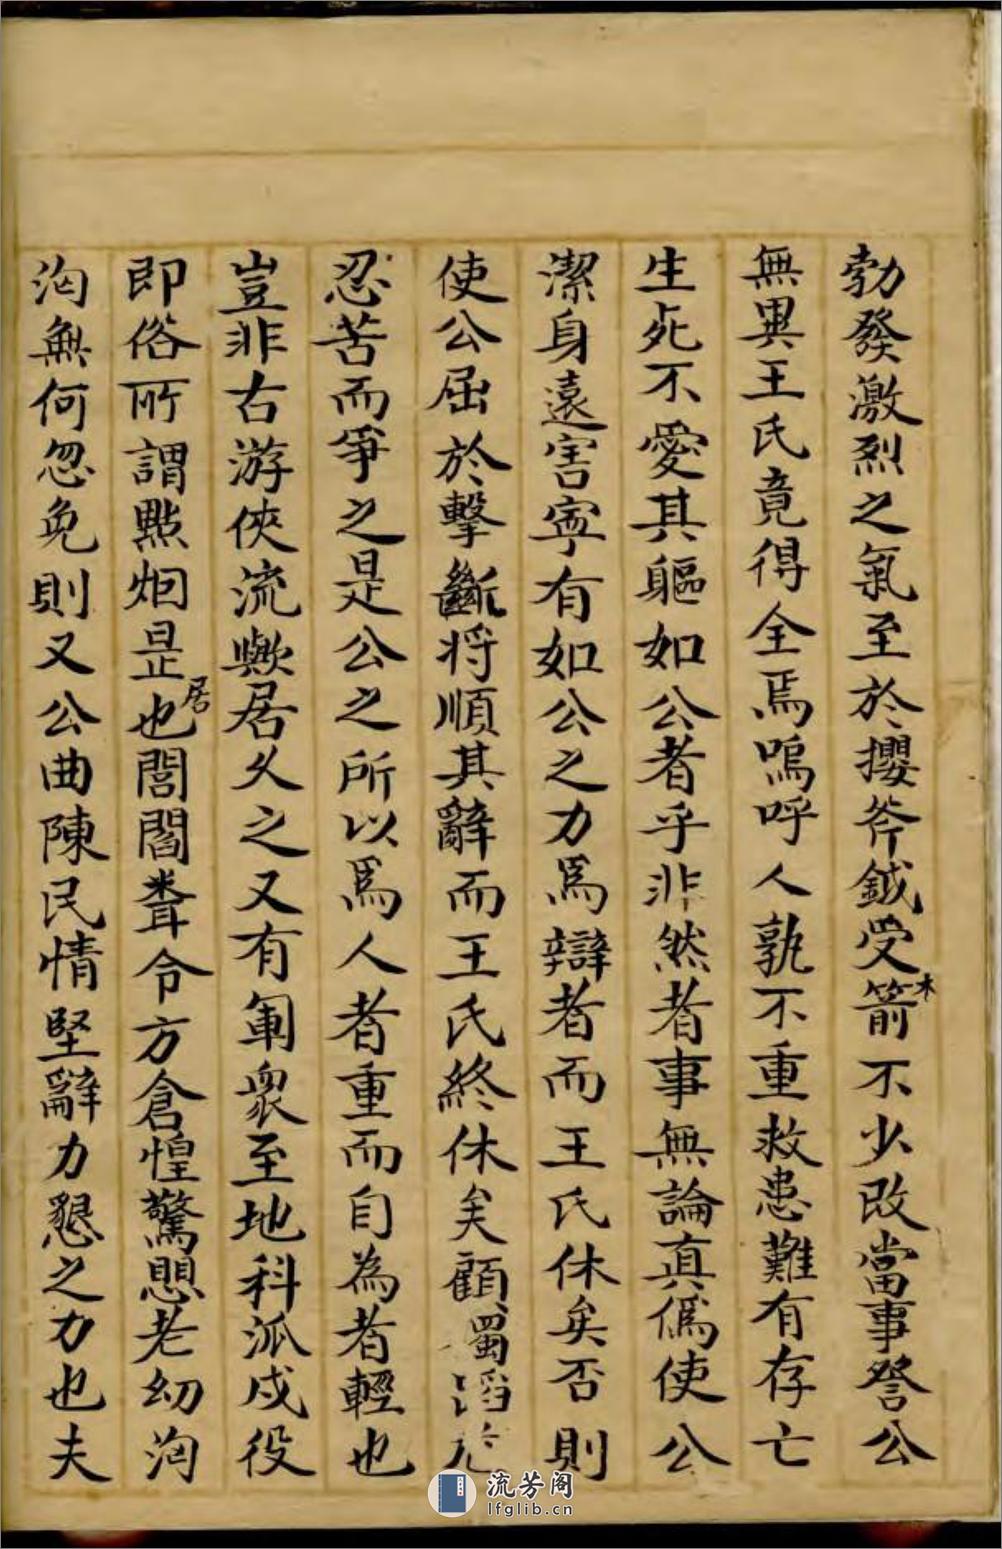 勃發激烈之氣至於攖斧鉞受箭木不少改當事詧公
無異王氏竟得全焉嗚呼人孰不重救患難有存亡
生死不愛其軀如公者乎非然者事無論真僞使公
潔身遠害寧有如公之力爲辯者而王氏休矣否則
使公屈於擊斷將順其辭而王氏終休矣顧蜀滔
忍苦而爭之是公之所以爲人者重而自為者輕也
豈非古游俠流歟居乆之又有軍衆至地科派戍役
即俗所謂點烟是也居閭閻聋令方倉惶驚思老幼洶
洶無何忽免則又公曲陳民情堅辭力懇之力也夫
流芳阁
lfglib.cn